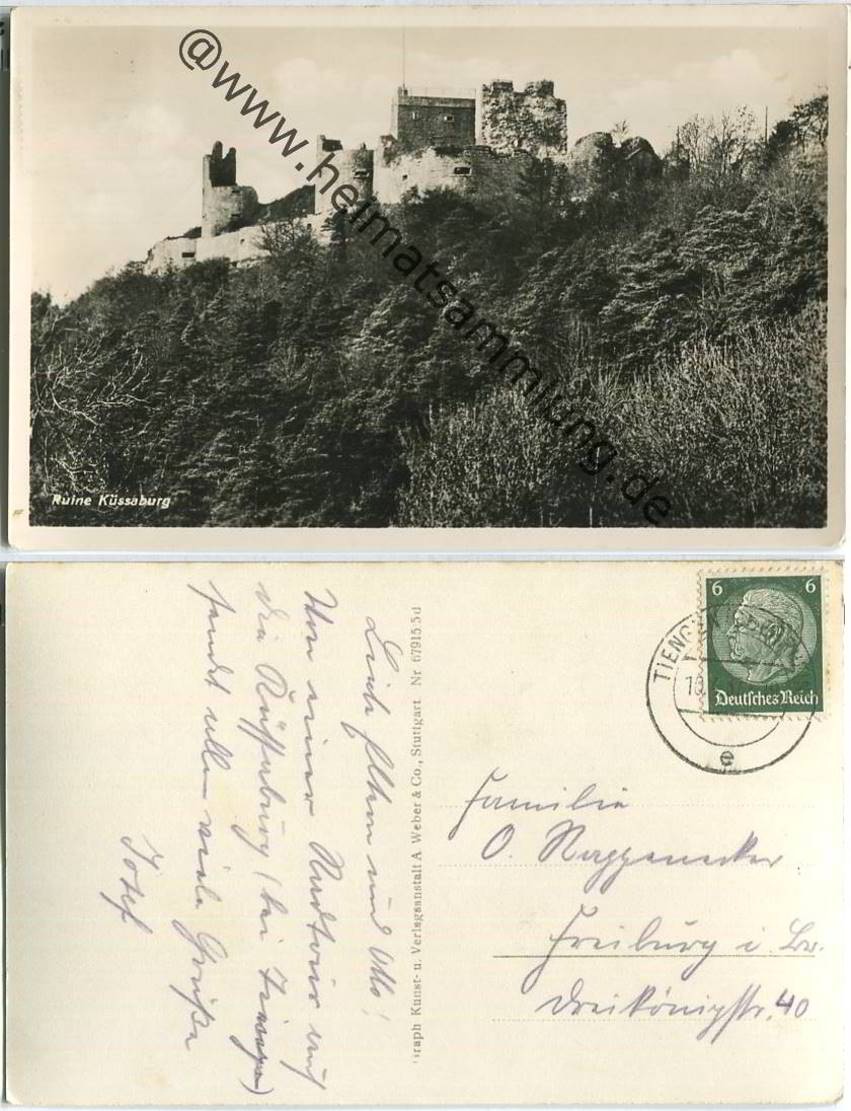 @www.heimatsammlung.de
Ruine Küssaburg
Liebe Eltern und Otto!
Von einer Radtour auf
die Küssaburg (bei Tiengen)
sendet allen viele Grüße
Josef
graph Kunst- u. Verlagsanstalt A Weber & Co., Stuttgart. Nr 67915 5d
6 6
Deutsches Reich
TIENG
10
e
Familie
O.
Freiburg i. Br.
Dreikönigstr. 40